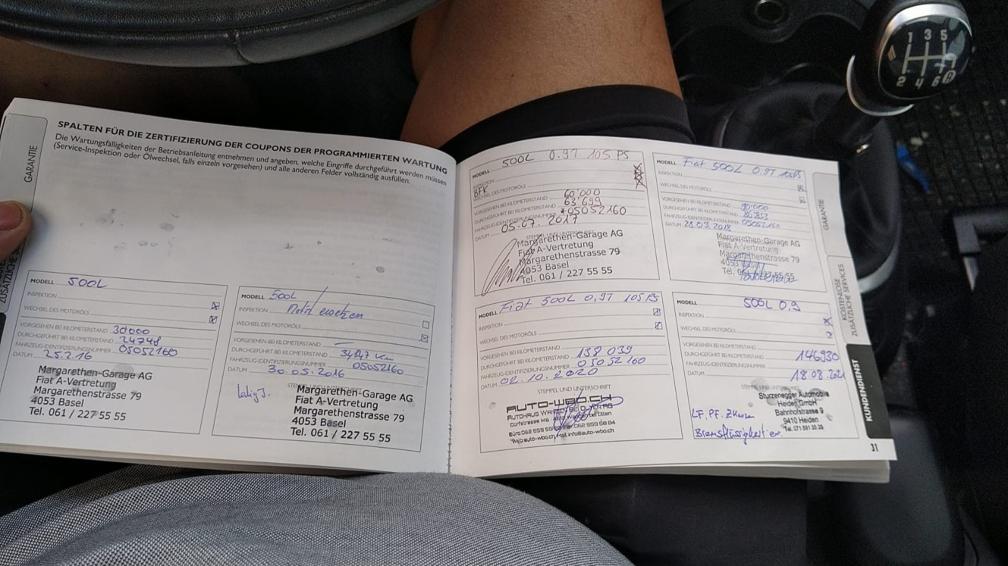 GARANTIE
SPALTEN FÜR DIE ZERTIFIZIERUNG DER COUPONS DER PROGRAMMIERTEN WARTUNG
Die Wartungsfälligkeiten der Betriebsanleitung entnehmen und angeben, welche Eingriffe durchgeführt werden müssen
(Service-Inspektion oder Ölwechsel, falls einzeln vorgesehen) und alle anderen Felder vollständig ausfüllen.
MODELL 500L
INSPEKTION
WECHSEL DES MOTORÖLS
VORGESEHEN BEI KILOMETERSTAND 30000
DURCHGEFÜHRT BEI KILOMETERSTAND
FAHRZEUG-IDENTIFIZIERUNGSNUMMER 05052160
DATUM 25.2.16
Margarethen-Garage AG
Fiat A-Vertretung
Margarethenstrasse 79
4053 Basel
Tel. 061 / 227 55 55
MODELL 500L
INSPEKTION
WECHSEL DES MOTORÖLS
VORGESEHEN BEI KILOMETERSTAND
DURCHGEFÜHRT BEI KILOMETERSTAND
FAHRZEUG-IDENTIFIZIERUNGSNUMMER 05052160
DATUM 30.05.2016
Margarethen-Garage AG
Fiat A-Vertretung
Margarethenstrasse 79
4053 Basel
Tel. 061 / 227 55 55
MODELL 500L 0.9T 105 PS
WECHSEL DES MOTORÖLS
VORGESEHEN BEI KILOMETERSTAND 60'000
DURCHGEFÜHRT BEI KILOMETERSTAND 63'699
FAHRZEUG-IDENTIFIZIERUNGSNUMMER *05052160
DATUM 05.07.2017
Margarethen-Garage AG
Fiat A-Vertretung
Margarethenstrasse 79
4053 Basel
Tel. 061 / 227 55 55
MODELL Fiat 500L 0.9T 105PS
INSPEKTION
WECHSEL DES MOTORÖLS
VORGESEHEN BEI KILOMETERSTAND 90.000
DURCHGEFÜHRT BEI KILOMETERSTAND
FAHRZEUG-IDENTIFIZIERUNGSNUMMER 05052160
DATUM 28.03.2018
Margarethen-Garage AG
Fiat A-Vertretung
Margarethenstrasse 79
4053 Basel
Tel. 061 / 227 55 55
MODELL Fiat 500L 0.9T 105 PS
INSPEKTION
WECHSEL DES MOTORÖLS
VORGESEHEN BEI KILOMETERSTAND
DURCHGEFÜHRT BEI KILOMETERSTAND 138 039
FAHRZEUG-IDENTIFIZIERUNGSNUMMER 05052160
DATUM 02.10.2020
STEMPEL UND UNTERSCHRIFT
AUTO-WBO.CH
MODELL 500L 0.9
INSPEKTION
WECHSEL DES MOTORÖLS
VORGESEHEN BEI KILOMETERSTAND
DURCHGEFÜHRT BEI KILOMETERSTAND 146930
FAHRZEUG-IDENTIFIZIERUNGSNUMMER
DATUM 18.08.2021
Sturzenegger Automobile
Heiden GmbH
Bahnhofstrasse 9
9410 Heiden
GARANTIE
KOSTENLOSE
ZUSÄTZLICHE SERVICES
KUNDENDIENST
31
1 3 5
2 4 6 R